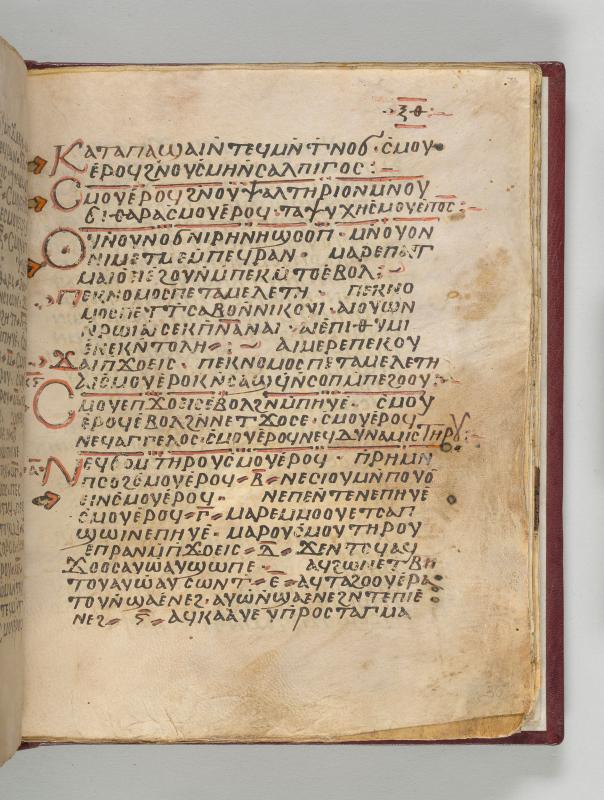 ⲝⲑ
ⲕⲁⲧⲁⲡⲁϣⲁⲓ ⲛⲧⲉϥⲙⲛⲧⲛⲟϭ · ⲥⲙⲟⲩ
ⲉⲣⲟϥ ϩⲛⲟⲩⲥⲙⲏ ⲛⲥⲁⲗⲡⲓⲅⲟⲥ :
ⲥⲙⲟⲩ ⲉⲣⲟϥ ϩⲛⲟⲩⲯⲁⲗⲧⲏⲣⲓⲟⲛ ⲙⲛⲟⲩ
ϭⲓⲑⲁⲣⲁ ⲥⲙⲟⲩ ⲉⲣⲟϥ · ⲧⲁⲯⲩⲭⲏ ⲥⲙⲟⲩ ⲉⲡⲟⲥ :
ⲟⲩⲛⲟⲩⲛⲟϭ ⲛⲓⲣⲏⲛⲏ ϣⲟⲟⲡ · ⲛⲟⲩⲟⲛ
ⲛⲓⲙ ⲉⲧⲙⲉ ⲙⲡⲉⲩⲣⲁⲛ · ⲙⲁⲣⲉⲡϩⲏⲧ
ⲙⲡⲉⲕϫⲧⲟ ⲉⲃⲟⲗ :
ⲡⲉⲕⲛⲟⲙⲟⲥ ⲡⲉ ⲧⲁⲙⲉⲗⲉⲧⲏ · ⲡⲉⲕⲛⲟ
ⲙⲟⲥ ⲡⲉⲧⲧⲥⲁⲃⲟ ⲛⲛⲓⲕⲟⲩⲓ · ⲁⲓⲟⲩⲱⲛ
ⲛⲣⲱⲓ ⲁⲓⲥⲉⲕ ⲡⲛⲁ ⲛⲁⲓ · ⲁⲓⲉⲡⲓⲑⲩⲙⲓ
ⲉⲛⲉⲕⲛⲧⲟⲗⲏ : ⲁⲓⲙⲉⲣⲉ ⲡⲉⲕⲟⲩ
ϫⲁⲓ ⲡϫⲟⲉⲓⲥ · ⲡⲉⲕⲛⲟⲙⲟⲥ ⲡⲉ ⲧⲁⲙⲉⲗⲉⲧⲏ
ⲁⲓⲥⲙⲟⲩ ⲉⲣⲟⲕ ⲛⲥⲁϣϥ ⲛⲥⲟⲡ ⲙⲡⲉϩⲟⲟⲩ :
ⲥⲙⲟⲩ ⲉⲡϫⲟⲉⲓⲥ ⲉⲃⲟⲗ ϩⲛⲙⲡⲏⲩⲉ · ⲥⲙⲟⲩ
ⲉⲣⲟϥ ⲉⲃⲟⲗ ϩⲛⲛⲉⲧϫⲟⲥⲉ · ⲥⲙⲟⲩ ⲉⲣⲟϥ
ⲛⲉϥⲁⲅⲅⲉⲗⲟⲥ · ⲥⲙⲟⲩ ⲉⲣⲟϥ ⲛⲉϥⲇⲩⲛⲁⲙⲓⲥ ⲧⲏⲣⲟⲩ :
ⲛⲉϥϭⲟⲙ ⲧⲏⲣⲟⲩ ⲥⲙⲟⲩ ⲉⲣⲟϥ · ⲡⲣⲏ ⲙⲛ
ⲡⲟⲟϩ ⲥⲙⲟⲩ ⲉⲣⲟϥ = ⲃ = ⲛⲉⲥⲓⲟⲩ ⲙⲛⲡⲟⲩⲟ
ⲉⲓⲛ ⲥⲙⲟⲩ ⲉⲣⲟϥ · ⲛⲉⲡⲉⲛⲧⲉⲛⲉⲡⲏⲩⲉ
ⲥⲙⲟⲩ ⲉⲣⲟϥ = ⲅ = ⲙⲁⲣⲉⲙⲙⲟⲟⲩ ⲉⲧⲥⲁⲡ
ϣⲱⲓ ⲛⲉⲡⲏⲩⲉ · ⲙⲁⲣⲟⲩⲥⲙⲟⲩ ⲧⲏⲣⲟⲩ
ⲉⲡⲣⲁⲛ ⲙⲡϫⲟⲉⲓⲥ = ⲇ = ϫⲉ ⲛⲧⲟϥ ⲁϥ
ϫⲟⲟⲥ ⲁⲩⲱ ⲁⲩϣⲱⲡⲉ · ⲁϥϩⲱⲛ ⲉⲧⲃⲏ
ⲧⲟⲩ ⲁⲩⲱ ⲁⲩⲥⲱⲛⲧ = ⲉ = ⲁϥⲧⲁϩⲟⲟⲩ ⲉⲣⲁ
ⲧⲟⲩ ⲛϣⲁⲉⲛⲉϩ · ⲁⲩⲱ ⲛϣⲁⲉⲛⲉϩ ⲛⲧⲉⲡⲓⲉ
ⲛⲉϩ = ⲋ = ⲁϥⲕⲁⲁⲩⲉⲩⲡⲣⲟⲥⲧⲁⲅⲙⲁ